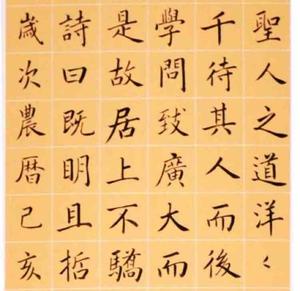 聖人之道洋〻
千待其人而後
學問致廣大而
是故居上不驕
詩曰既明且哲
歲次農暦己亥